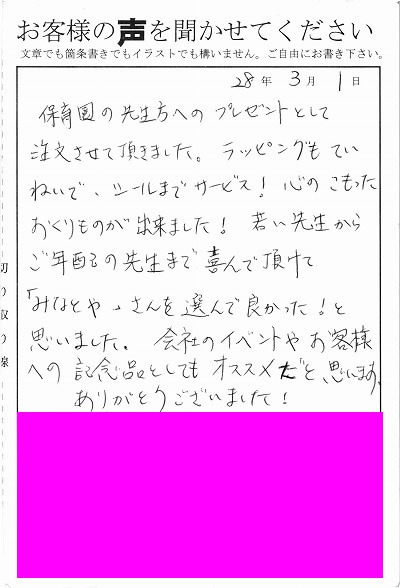 お客様の声を聞かせてください
文章でも箇条書きでもイラストでも構いません。ご自由にお書き下さい。
28年 3月 1日
保育園の先生方へのプレゼントとして
注文させて頂きました。ラッピングもてい
ねいで、シールまでサービス！心のこもった
おくりものが出来ました！若い先生から
ご年配の先生まで喜んで頂けて
「みなとや」さんを選んで良かった！と
思いました。会社のイベントやお客様
への記念品としてもオススメだと思います。
ありがとうございました！
切り取り線